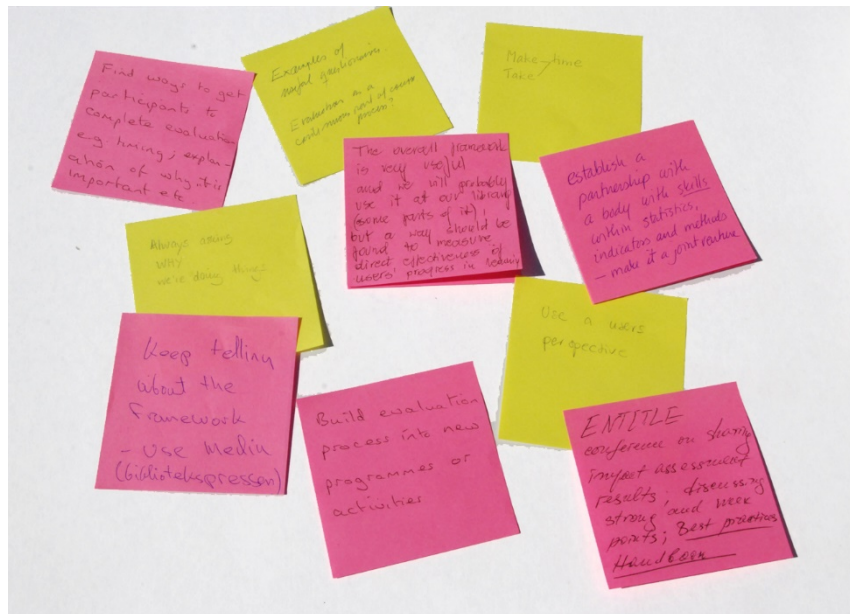 Find ways to get
participants to
complete evaluation
e.g. timing; explan-
ation of why it is
important etc.
Examples of
useful questionnaires.
Evaluation as a
continuous part of
process?
Make time
Take
The overall framework
is very useful
and we will probably
use it at our library
(some parts of it),
but a way should be
found to measure
direct effectiveness of
users' progress in
establish a
partnership with
a body with skills
within statistics,
indicators and methods
- make it a joint venture
Always asking
WHY
we're doing things
Use a users
perspective
Keep telling
about the
Framework
- use Media
(bibliotekspressen)
Build evaluation
process into new
programmes or
activities
ENTITLE
conference on sharing
impact assessment
results, discussing
strong and weak
points; Best practices
Handbook